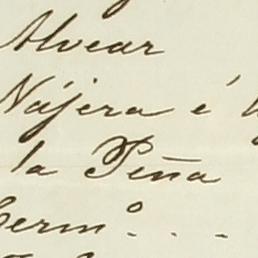 Alvear
Nájera é
la Peña
Cerm.º . . .